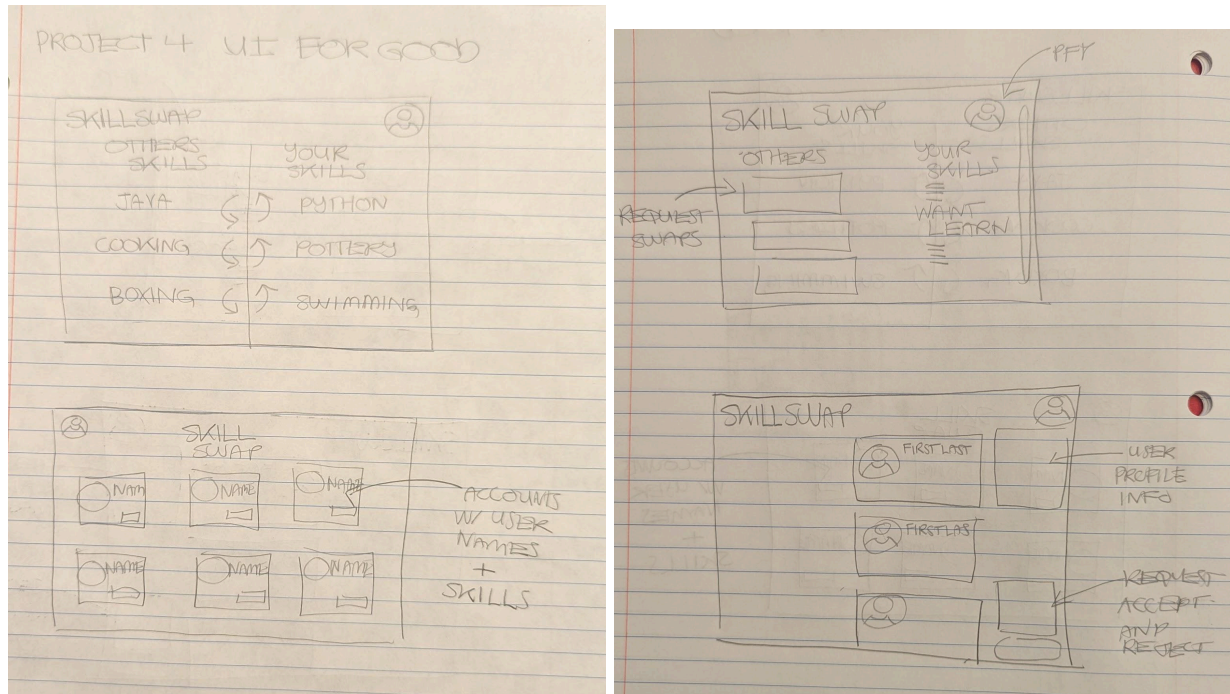 PROJECT 4 UI FOR GOOD
SKILLSWAP
OTHERS
SKILLS
YOUR
SKILLS
JAVA
PYTHON
COOKING
POTTERY
BOXING
SWIMMING
SKILL
SWAP
NAM
NAME
NAME
NAME
NAME
NAME
ACCOUNTS
W/ USER
NAMES
+
SKILLS
PFY
SKILL SWAP
OTHERS
YOUR
SKILLS
WANT
LEARN
REQUEST
SWAPS
SKILLSWAP
FIRST LAST
FIRST LAS
USER
PROFILE
INFO
REQUEST
ACCEPT
AND
REJECT